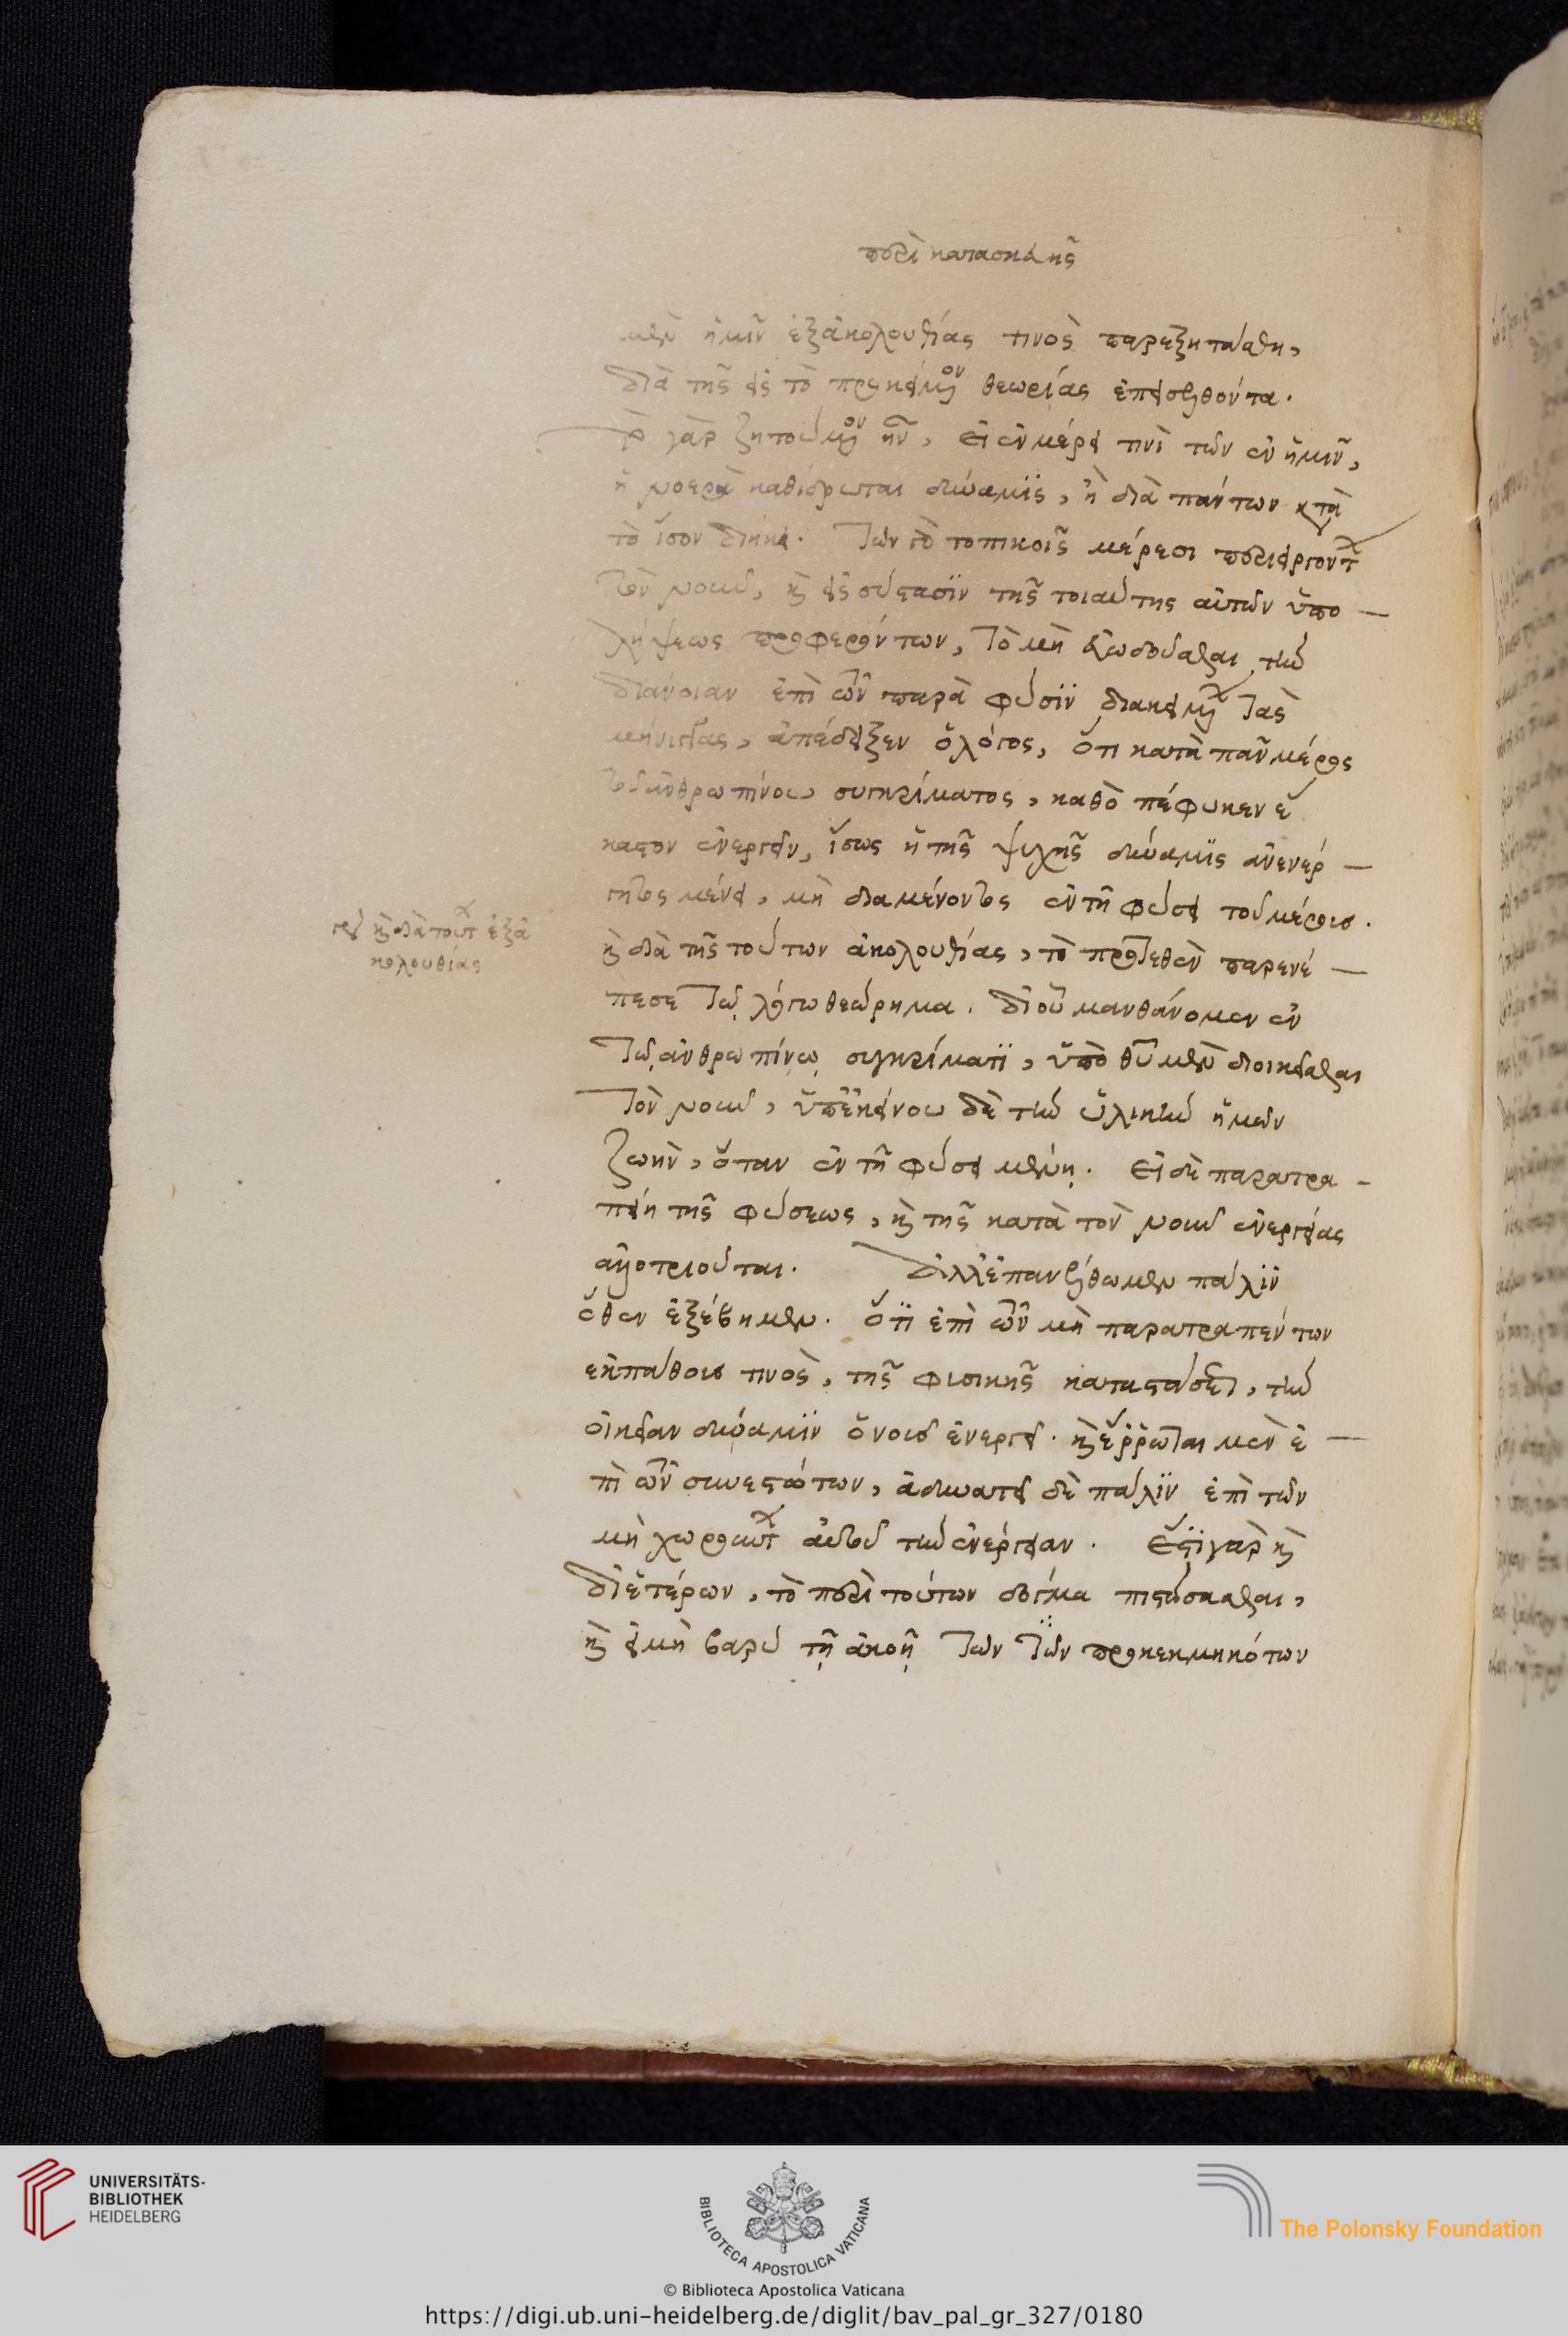 περὶ κατασκευῆς
μὲν ἡμῖν ἐξ ἀκολουθίας τινὸς παρεξητάσθη,
διὰ τῆς εἰς τὸ προκείμενον θεωρίας ἐπεισελθόντα.
Τὸ γὰρ ζητούμενον ἦν, εἰ ἐν μέρει τινὶ τῶν ἐν ἡμῖν,
ἡ νοερὰ καθίδρυται δύναμις, ἢ διὰ πάντων κατὰ
τὸ ἴσον διήκει. Τῶν γὰρ τοπικοῖς μέρεσι περιειργόντων
τὸν νοῦν, καὶ εἰς σύστασιν τῆς τοιαύτης αὐτῶν ὑπο-
λήψεως προφερόντων, τὸ μὴ εὐοδοῦσθαι τὴν
διάνοιαν ἐπὶ τῶν παρὰ φύσιν διακειμένων τὰς
μήνιγγας, ἀπέδειξεν ὁ λόγος, ὅτι κατὰ πᾶν μέρος
τοῦ ἀνθρωπίνου συγκρίματος, καθὸ πέφυκεν ἕ
καστον ἐνεργεῖν, ἴσως ἡ τῆς ψυχῆς δύναμις ἀνενέρ-
γητος μένει, μὴ διαμένοντος ἐν τῇ φύσει τοῦ μέρους.
καὶ διὰ τῆς τούτων ἀκολουθίας, τὸ προτεθὲν παρενέ-
πεσε τῷ λόγῳ θεώρημα. δι' οὗ μανθάνομεν ἐν
τῷ ἀνθρωπίνῳ συγκρίματι, ὑπὸ θεοῦ μὲν διοικεῖσθαι
τὸν νοῦν, ὑπ' ἐκείνου δὲ τὴν ὑλικὴν ἡμῶν
ζωὴν, ὅταν ἐν τῇ φύσει μένῃ. Εἰ δὲ παρατρα-
πείη τῆς φύσεως, καὶ τῆς κατὰ τὸν νοῦν ἐνεργείας
ἀλλοτριοῦται. Ἀλλ' ἐπανέλθωμεν πάλιν
ὅθεν ἐξέβημεν. ὅτι ἐπὶ τῶν μὴ παρατραπέντων
ἐκ πάθους τινὸς, τῆς φυσικῆς καταστάσεως, τὴν
οἰκείαν δύναμιν ὁ νοῦς ἐνεργεῖ. καὶ ἔρρωται μὲν ἐ-
πὶ τῶν συνεστώτων, ἀδυνατεῖ δὲ πάλιν ἐπὶ τῶν
μὴ χωρούντων αὐτοῦ τὴν ἐνέργειαν. Ἔστι γὰρ καὶ
δι' ἑτέρων, τὸ περὶ τούτων δόγμα πιστώσασθαι,
καὶ εἰ μὴ βαρὺ τῇ ἀκοῇ τῶν τῶν προκεκμηκότων
καὶ διὰ τούτων ἐξ ἀ
κολουθίας
UNIVERSITÄTS-
BIBLIOTHEK
HEIDELBERG
BIBLIOTECA APOSTOLICA VATICANA
The Polonsky Foundation
© Biblioteca Apostolica Vaticana
https://digi.ub.uni-heidelberg.de/diglit/bav_pal_gr_327/0180